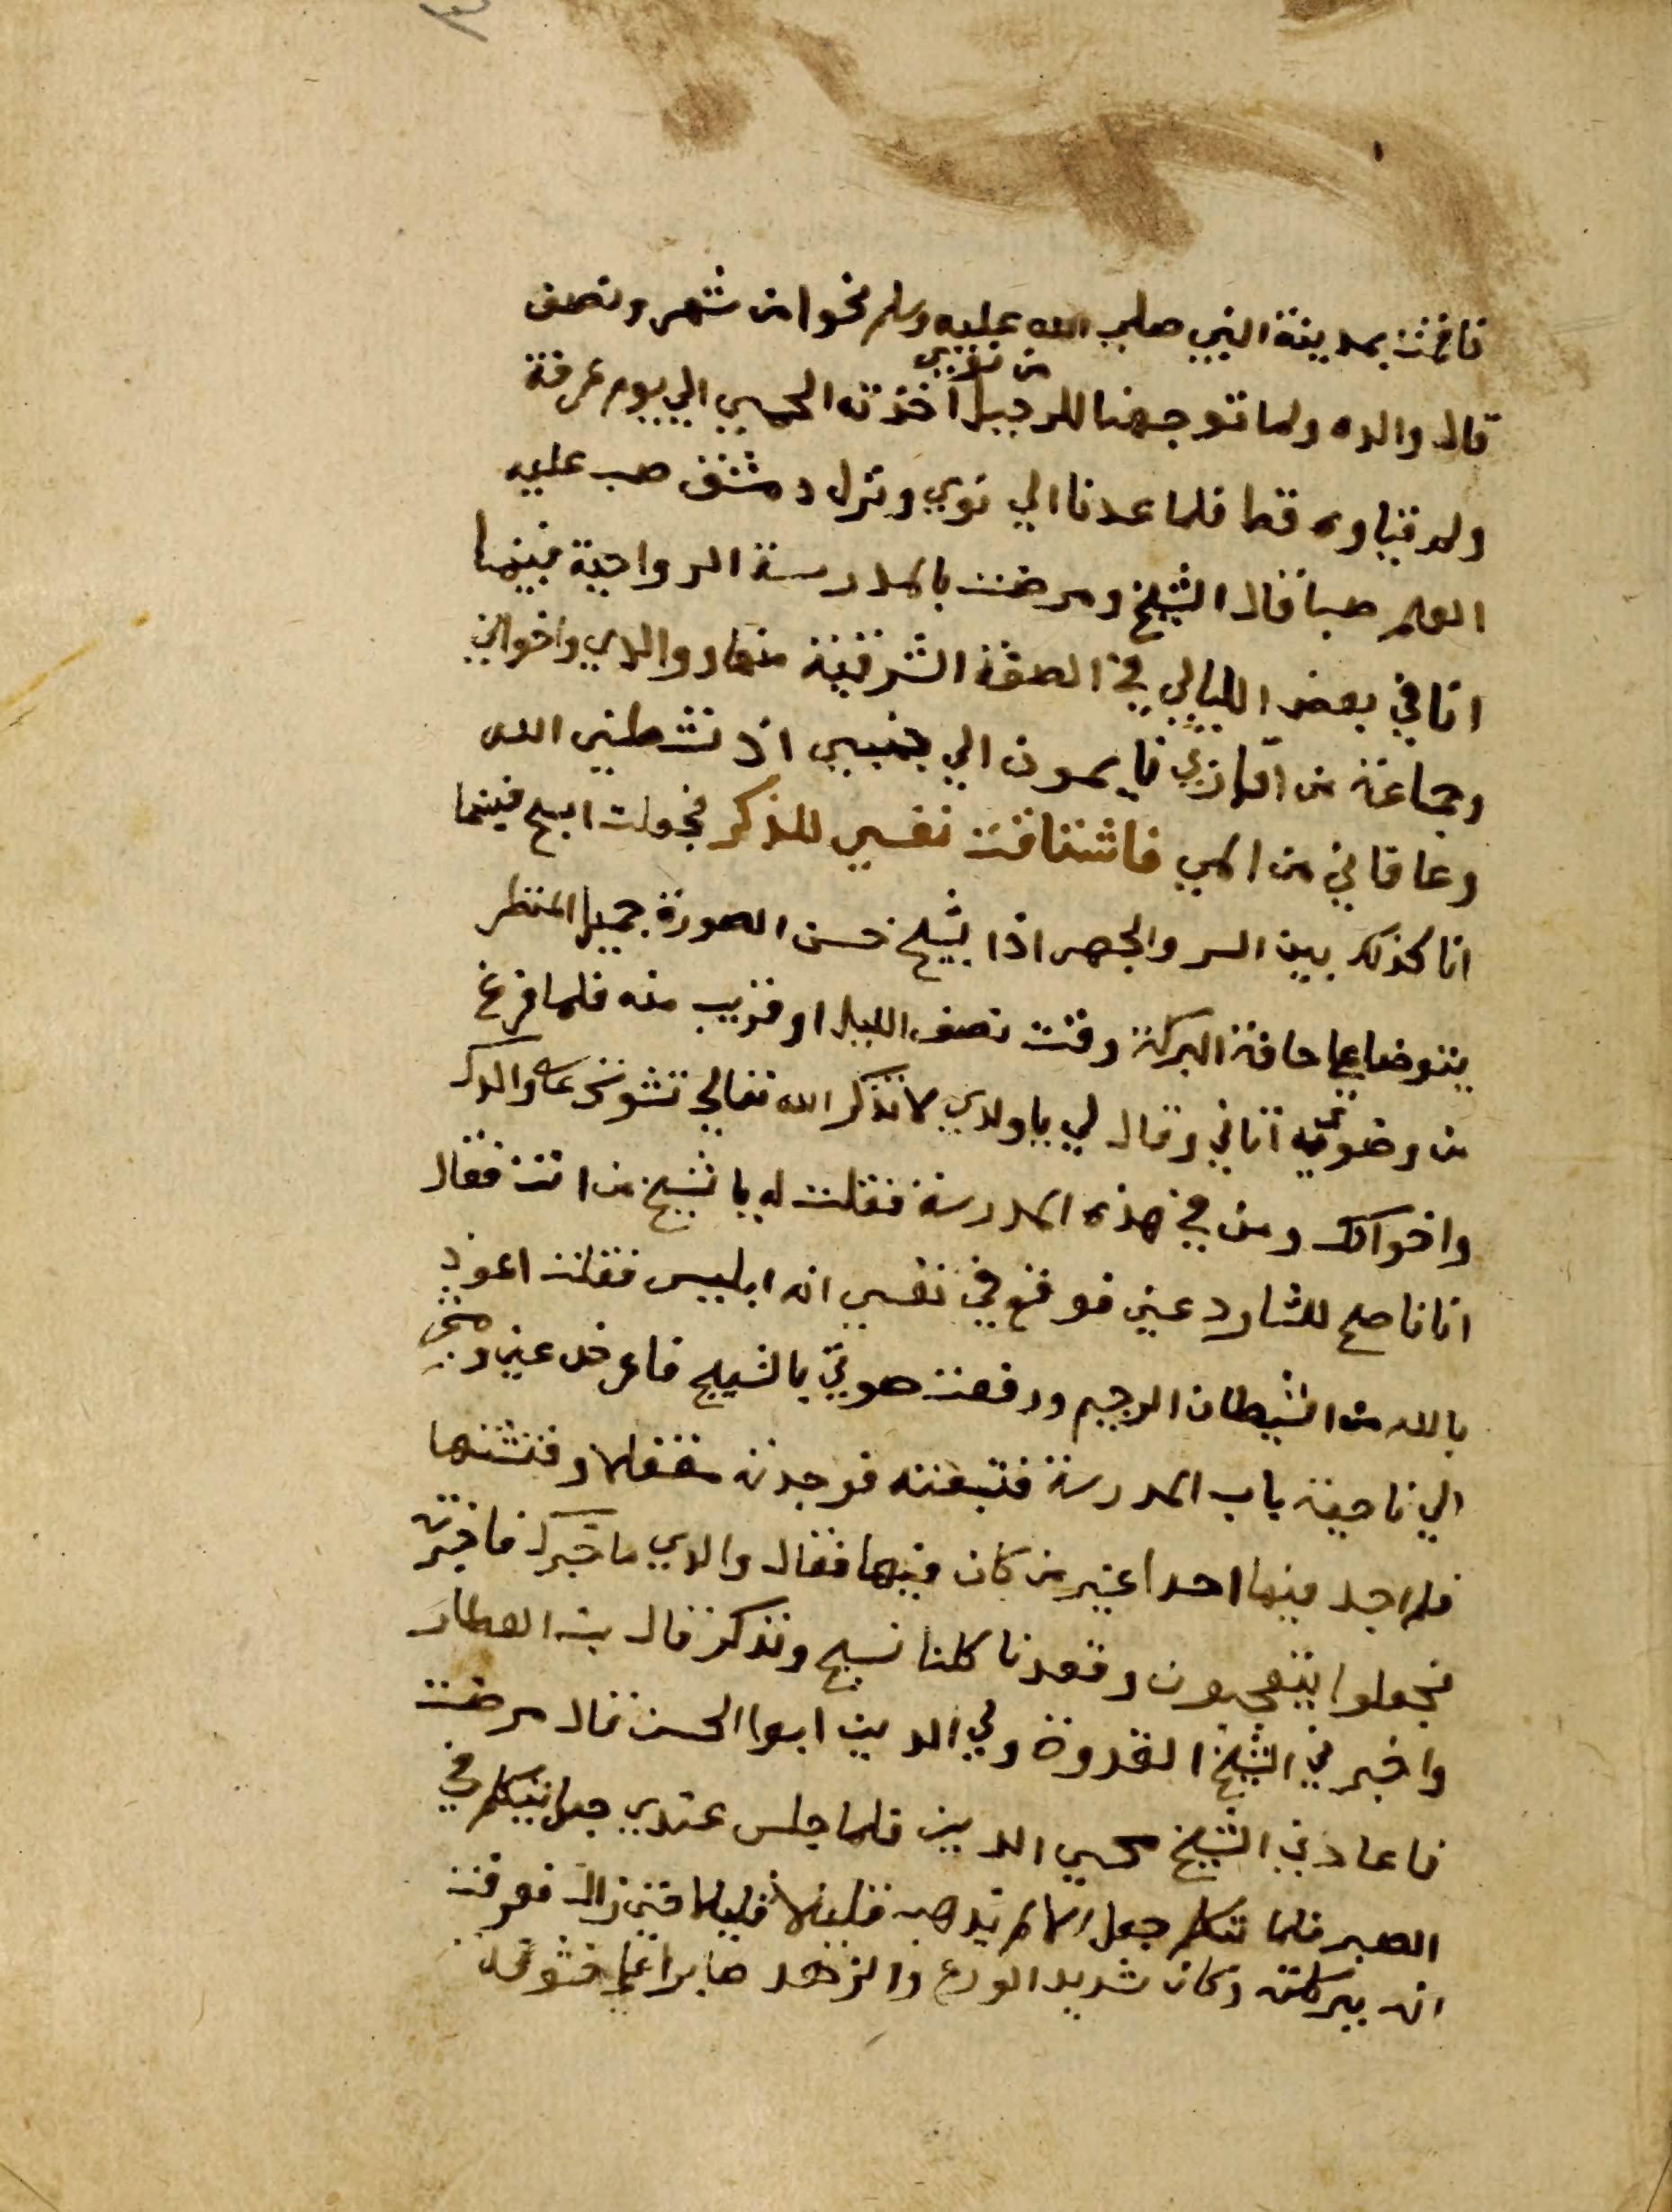 فاقمت بمدينة النبي صلي الله عليه وسلم نحوا من شهر ونصف
من نوي
قال والده ولما توجهنا للرحيل اخذته الحمي الي يوم عرفة
ولم يتاوه قط فلما عدنا الي نوي ونزل دمشق صب عليه
العلم صبا قال الشيخ ومرضت بالمدرسة الرواحية فبينما
انا في بعض الليالي في الصفة الشرقية منها ووالدي واخواتي
وجماعة من اقاربي نايمون الي جنبي اذ نشطني الله
وعافاني من المي فاشتاقت نفسي للذكر فجعلت اسبح فبينما
انا كذلك بين السر والجهر اذا بشيخ حسن الصورة جميل المنظر
يتوضا علي حافة البركة وقت نصف الليل او قريب منه فلما فرغ
من وضوئه اتاني وقال لي يا ولدي لا تذكر الله تعالي تشوش علي والدك
واخواتك ومن في هذه المدرسة فقلت له يا شيخ من انت فقال
انا ناصح للشارد عني فوقع في نفسي انه ابليس فقلت اعوذ
بالله من الشيطان الرجيم ورفعت صوتي بالتسبيح فاعرض عني ومشي
الي ناحية باب المدرسة فتبعته فوجدته مقفلا وفتشتها
فلم اجد فيها احدا غير من كان فيها فقال والدي ما خبرك فاخبرته
فجعلوا يتعجبون وقعدنا كلنا نسبح ونذكر قال بن العطار
واخبرني الشيخ القدوة ولي الدين ابو الحسن قال مرضت
فاعادني الشيخ محيي الدين فلما جلس عندي جعل يتكلم في
الصبر فلما تكلم جعل الالم يذهب قليلا قليلا حتي زال فعرفت
انه ببركته وكان شديد الورع والزهد صابرا علي خشونة